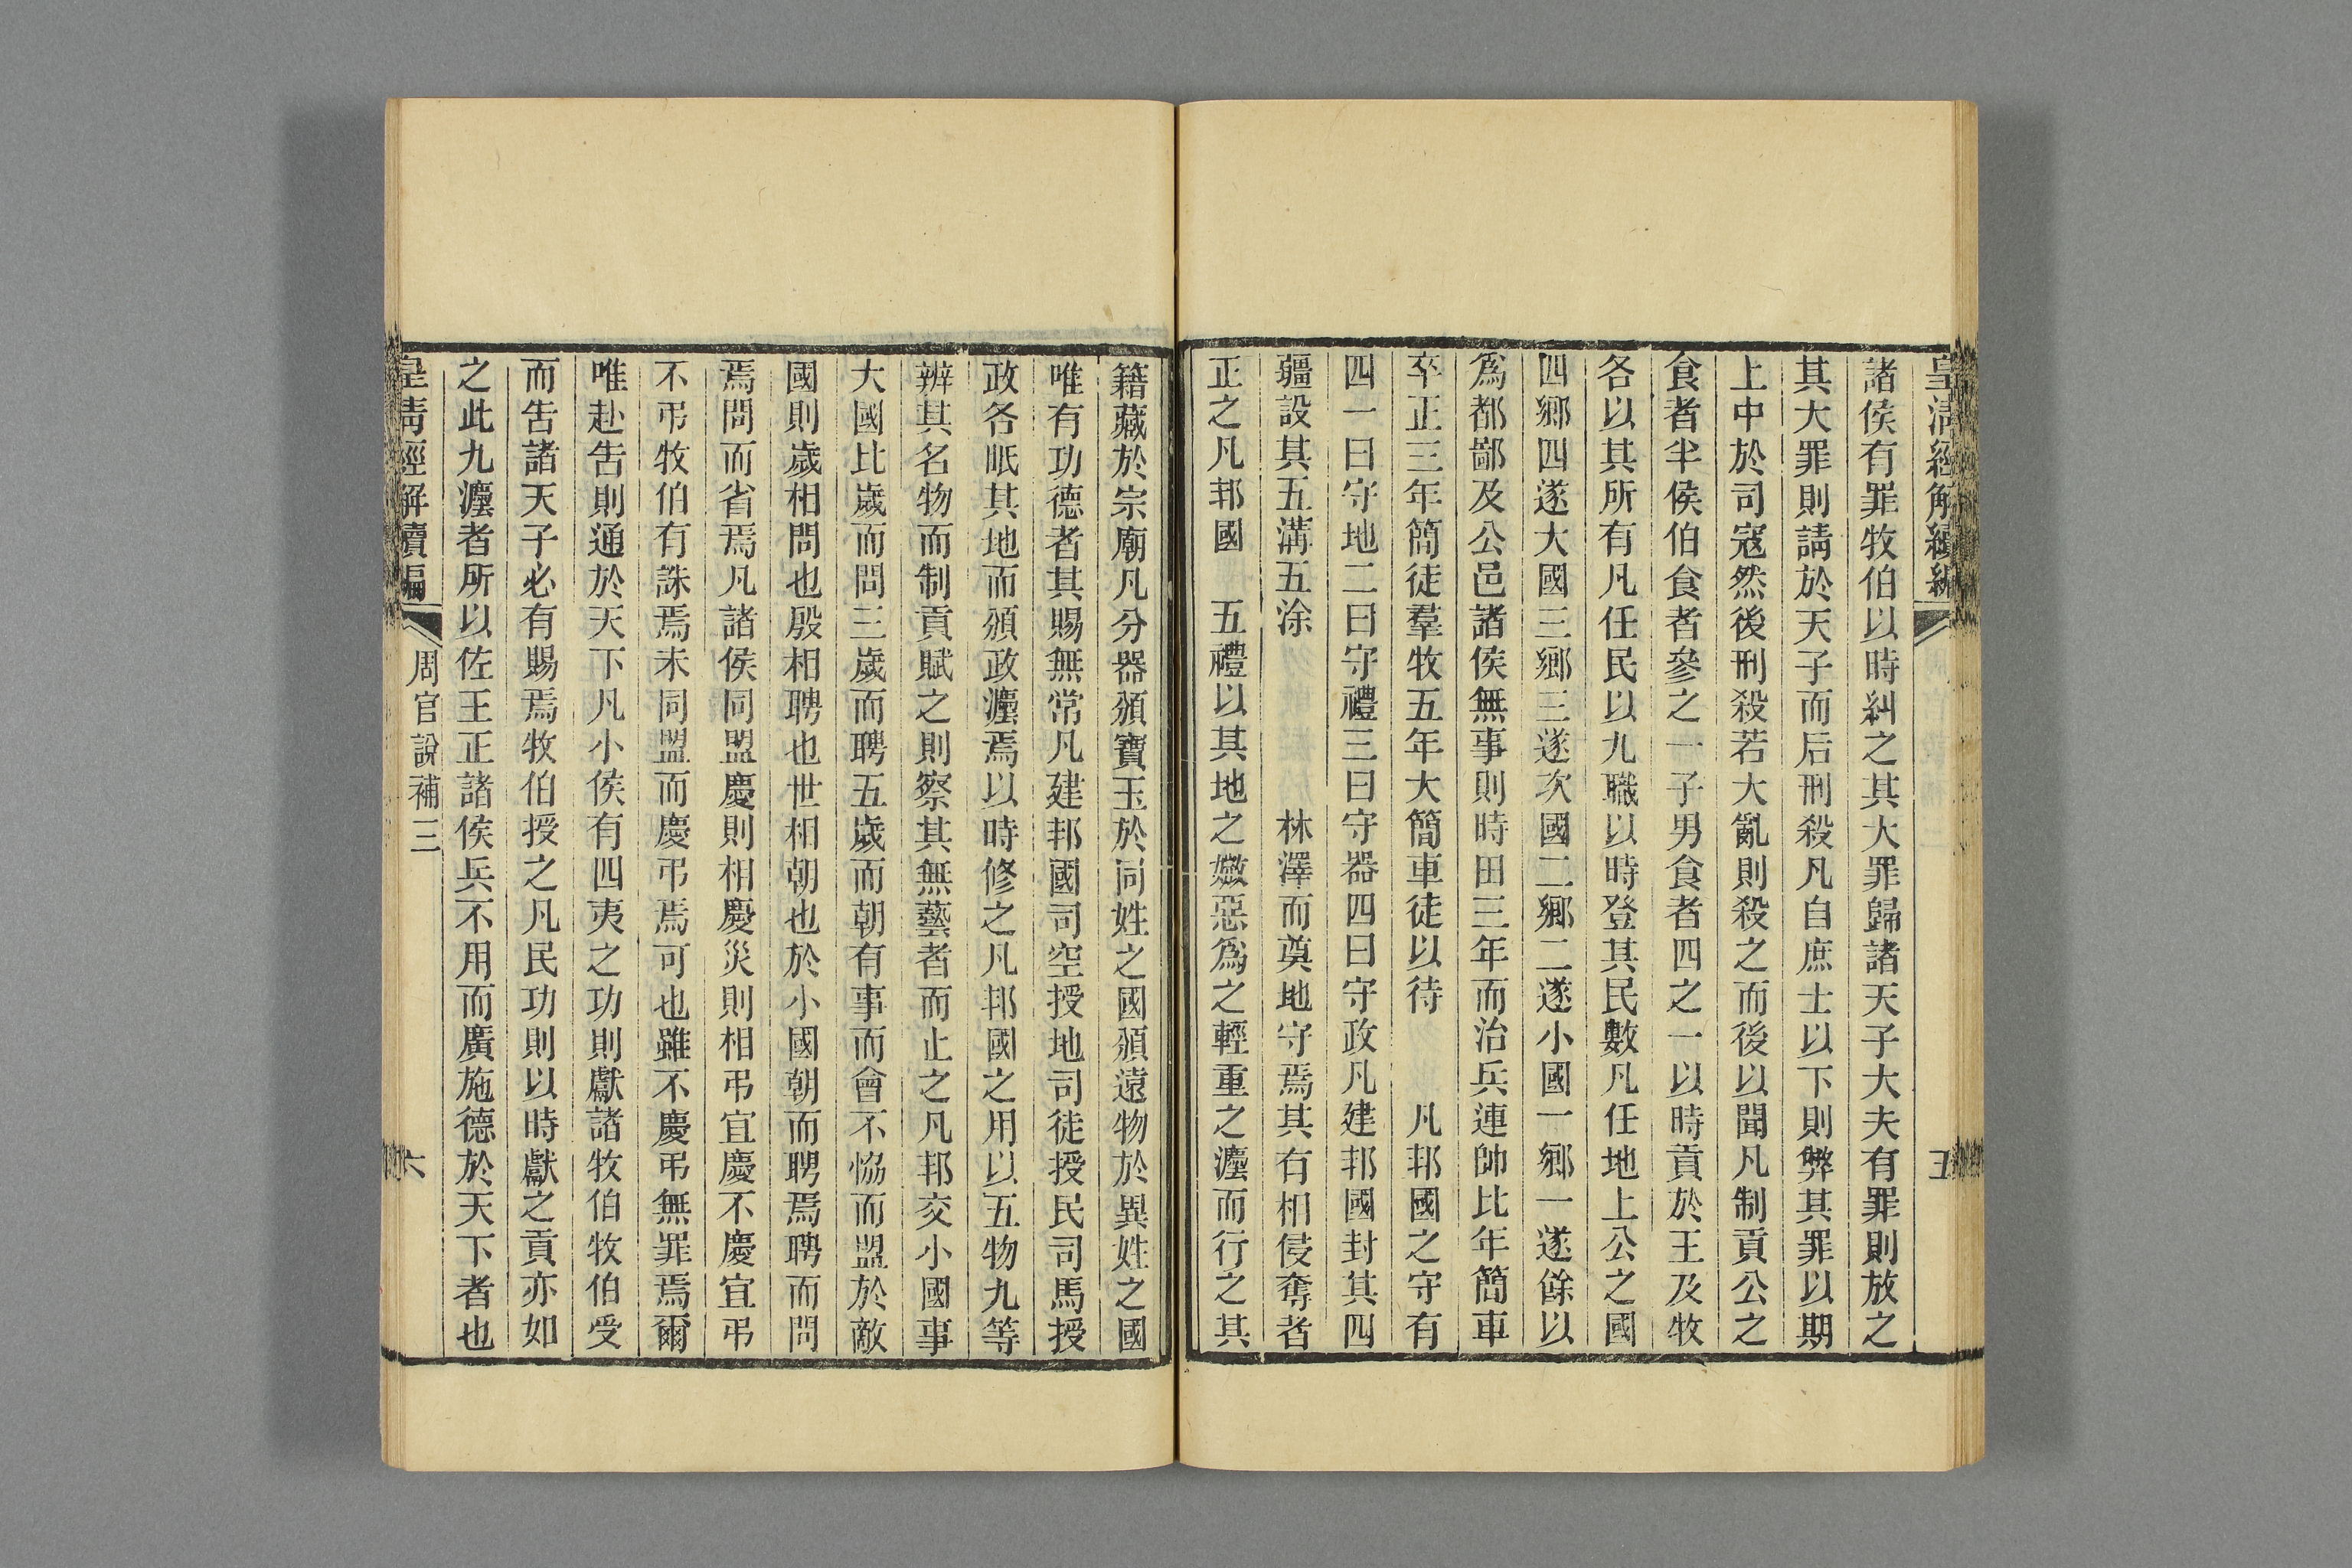 皇淸經解續編
五
諸侯有罪牧伯以時糾之其大罪歸諸天子大夫有罪則放之
其大罪則請於天子而后刑殺凡自庶士以下則弊其罪以期
上中於司寇然後刑殺若大亂則殺之而後以聞凡制貢公之
食者半侯伯食者參之一子男食者四之一以時貢於王及牧
各以其所有凡任民以九職以時登其民數凡任地上公之國
四鄉四遂大國三鄉三遂次國二鄉二遂小國一鄉一遂餘以
爲都鄙及公邑諸侯無事則時田三年而治兵連帥比年簡車
卒正三年簡徒羣牧五年大簡車徒以待　　凡邦國之守有
四一曰守地二曰守禮三曰守器四曰守政凡建邦國封其四
疆設其五溝五涂　　　　林澤而奠地守焉其有相侵奪者
正之凡邦國　五禮以其地之媺惡爲之輕重之灋而行之其
籍藏於宗廟凡分器頒寶玉於同姓之國頒遠物於異姓之國
唯有功德者其賜無常凡建邦國司空授地司徒授民司馬授
政各眂其地而頒政灋焉以時修之凡邦國之用以五物九等
辨其名物而制貢賦之則察其無藝者而止之凡邦交小國事
大國比歲而問三歲而聘五歲而朝有事而會不恊而盟於敵
國則歲相問也殷相聘也世相朝也於小國朝而聘焉聘而問
焉問而省焉凡諸侯同盟慶則相慶災則相弔宜慶不慶宜弔
不弔牧伯有誅焉未同盟而慶弔焉可也雖不慶弔無罪焉爾
唯赴吿則通於天下凡小侯有四夷之功則獻諸牧伯牧伯受
而吿諸天子必有賜焉牧伯授之凡民功則以時獻之貢亦如
之此九灋者所以佐王正諸侯兵不用而廣施德於天下者也
皇淸經解續編
周官說補三
六